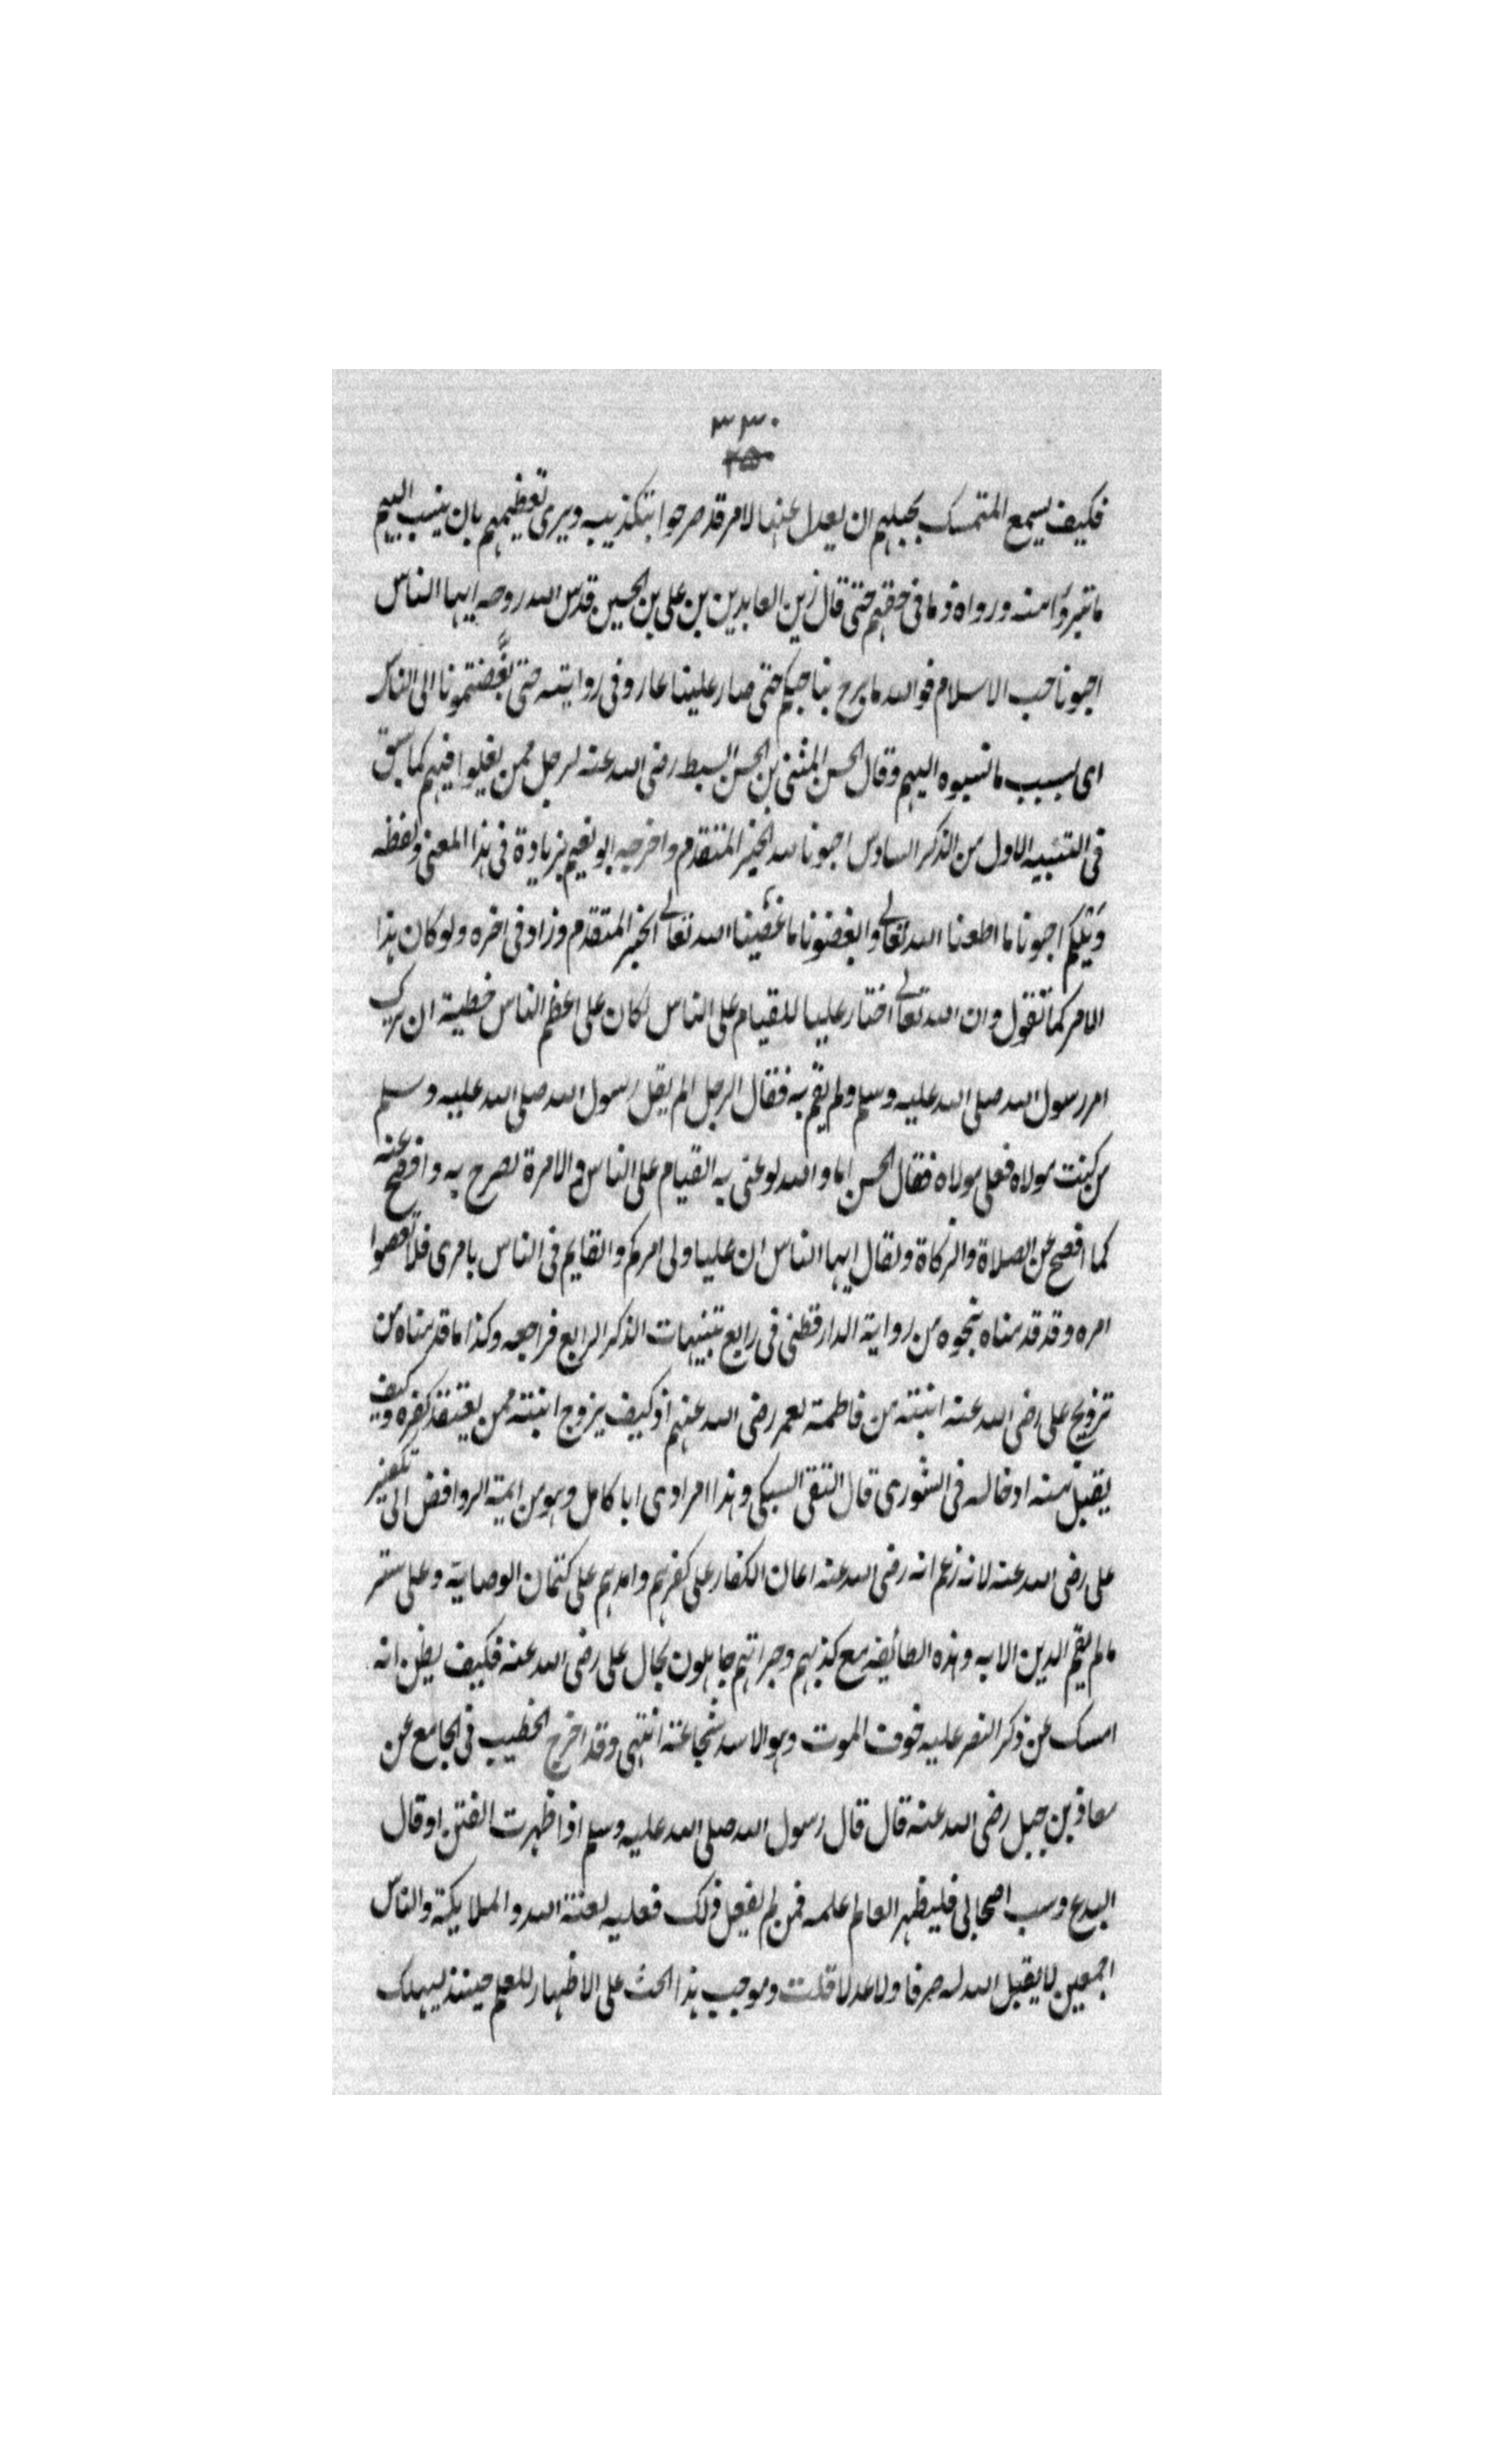 ٣٣٠
٢٥٠
فكيف يسمع المتمسك بحبلهم ان يعدل عنها لامر قد صرحوا بتكذيبه ويرى تعظيمهم بان ينسب اليهم
ما تبرؤا منه ورواه ذما فى حقهم حتى قال زين العابدين بن على بن الحسين قدس الله روحه ايها الناس
احبونا حب الاسلام فوالله ما برح بنا حبكم حتى صار علينا عار وفى رواية حتى بغّضتمونا الى الناس
اى بسبب ما نسبوه اليهم وقال الحسن المثنى بن الحسن السبط رضى الله عنه لرجل ممن يغلوا فيهم كما سبق
فى التنبيه الاول من الذكر السادس احبونا لله الخبر المتقدم واخرجه ابو نعيم بزيادة فى هذا المعنى ولفظه
ويلكم احبونا ما اطعنا الله تعالى وابغضونا ما عصينا الله تعالى الخبر المتقدم وزاد فى اخره ولو كان هذا
الامر كما تقول وان الله تعالى اختار عليا للقيام على الناس لكان على اعظم الناس خطية ان ترك
امر رسول الله صلى الله عليه وسلم ولم يقم به فقال الرجل الم يقل رسول الله صلى الله عليه وسلم
من كنت مولاه فعلى مولاه فقال الحسن اما والله لو عنى به القيام على الناس والامرة لصرح به وافصح عنه
كما افصح عن الصلاة والزكاة ولقال ايها الناس ان عليا ولى امركم والقايم فى الناس بامرى فلا تعصوا
امره وقد قدمناه بنحوه من رواية الدارقطنى فى رابع تنبيهات الذكر الرابع فراجعه وكذا ما قدمناه من
تزويج على رضى الله عنه ابنته من فاطمة لعمر رضى الله عنهم اذ كيف يزوج ابنته ممن يعتقد كفره وكيف
يقبل منه ادخاله فى الشورى قال التقى السبكى وهذا امر ادى ابا كامل وهو من ايمة الروافض الى تكفير
على رضى الله عنه لانه زعم انه رضى الله عنه اعان الكفار على كفرهم وامدهم على كتمان الوصاية وعلى ستر
ما لم يقم الدين الا به وهذه الطائفة مع كذبهم وجراتهم جاهلون بحال على رضى الله عنه فكيف يظن انه
امسك عن ذكر النص عليه خوف الموت وهو الاسد شجاعة انتهى وقد اخرج الخطيب فى الجامع عن
معاذ بن جبل رضى الله عنه قال قال رسول الله صلى الله عليه وسلم اذا ظهرت الفتن او قال
البدع وسب اصحابى فليظهر العالم علمه فمن لم يفعل ذلك فعليه لعنة الله والملايكة والناس
اجمعين لا يقبل الله له صرفا ولا عدلا قلت وموجب هذا الحث على الاظهار للعلم حينئذ ليهلك